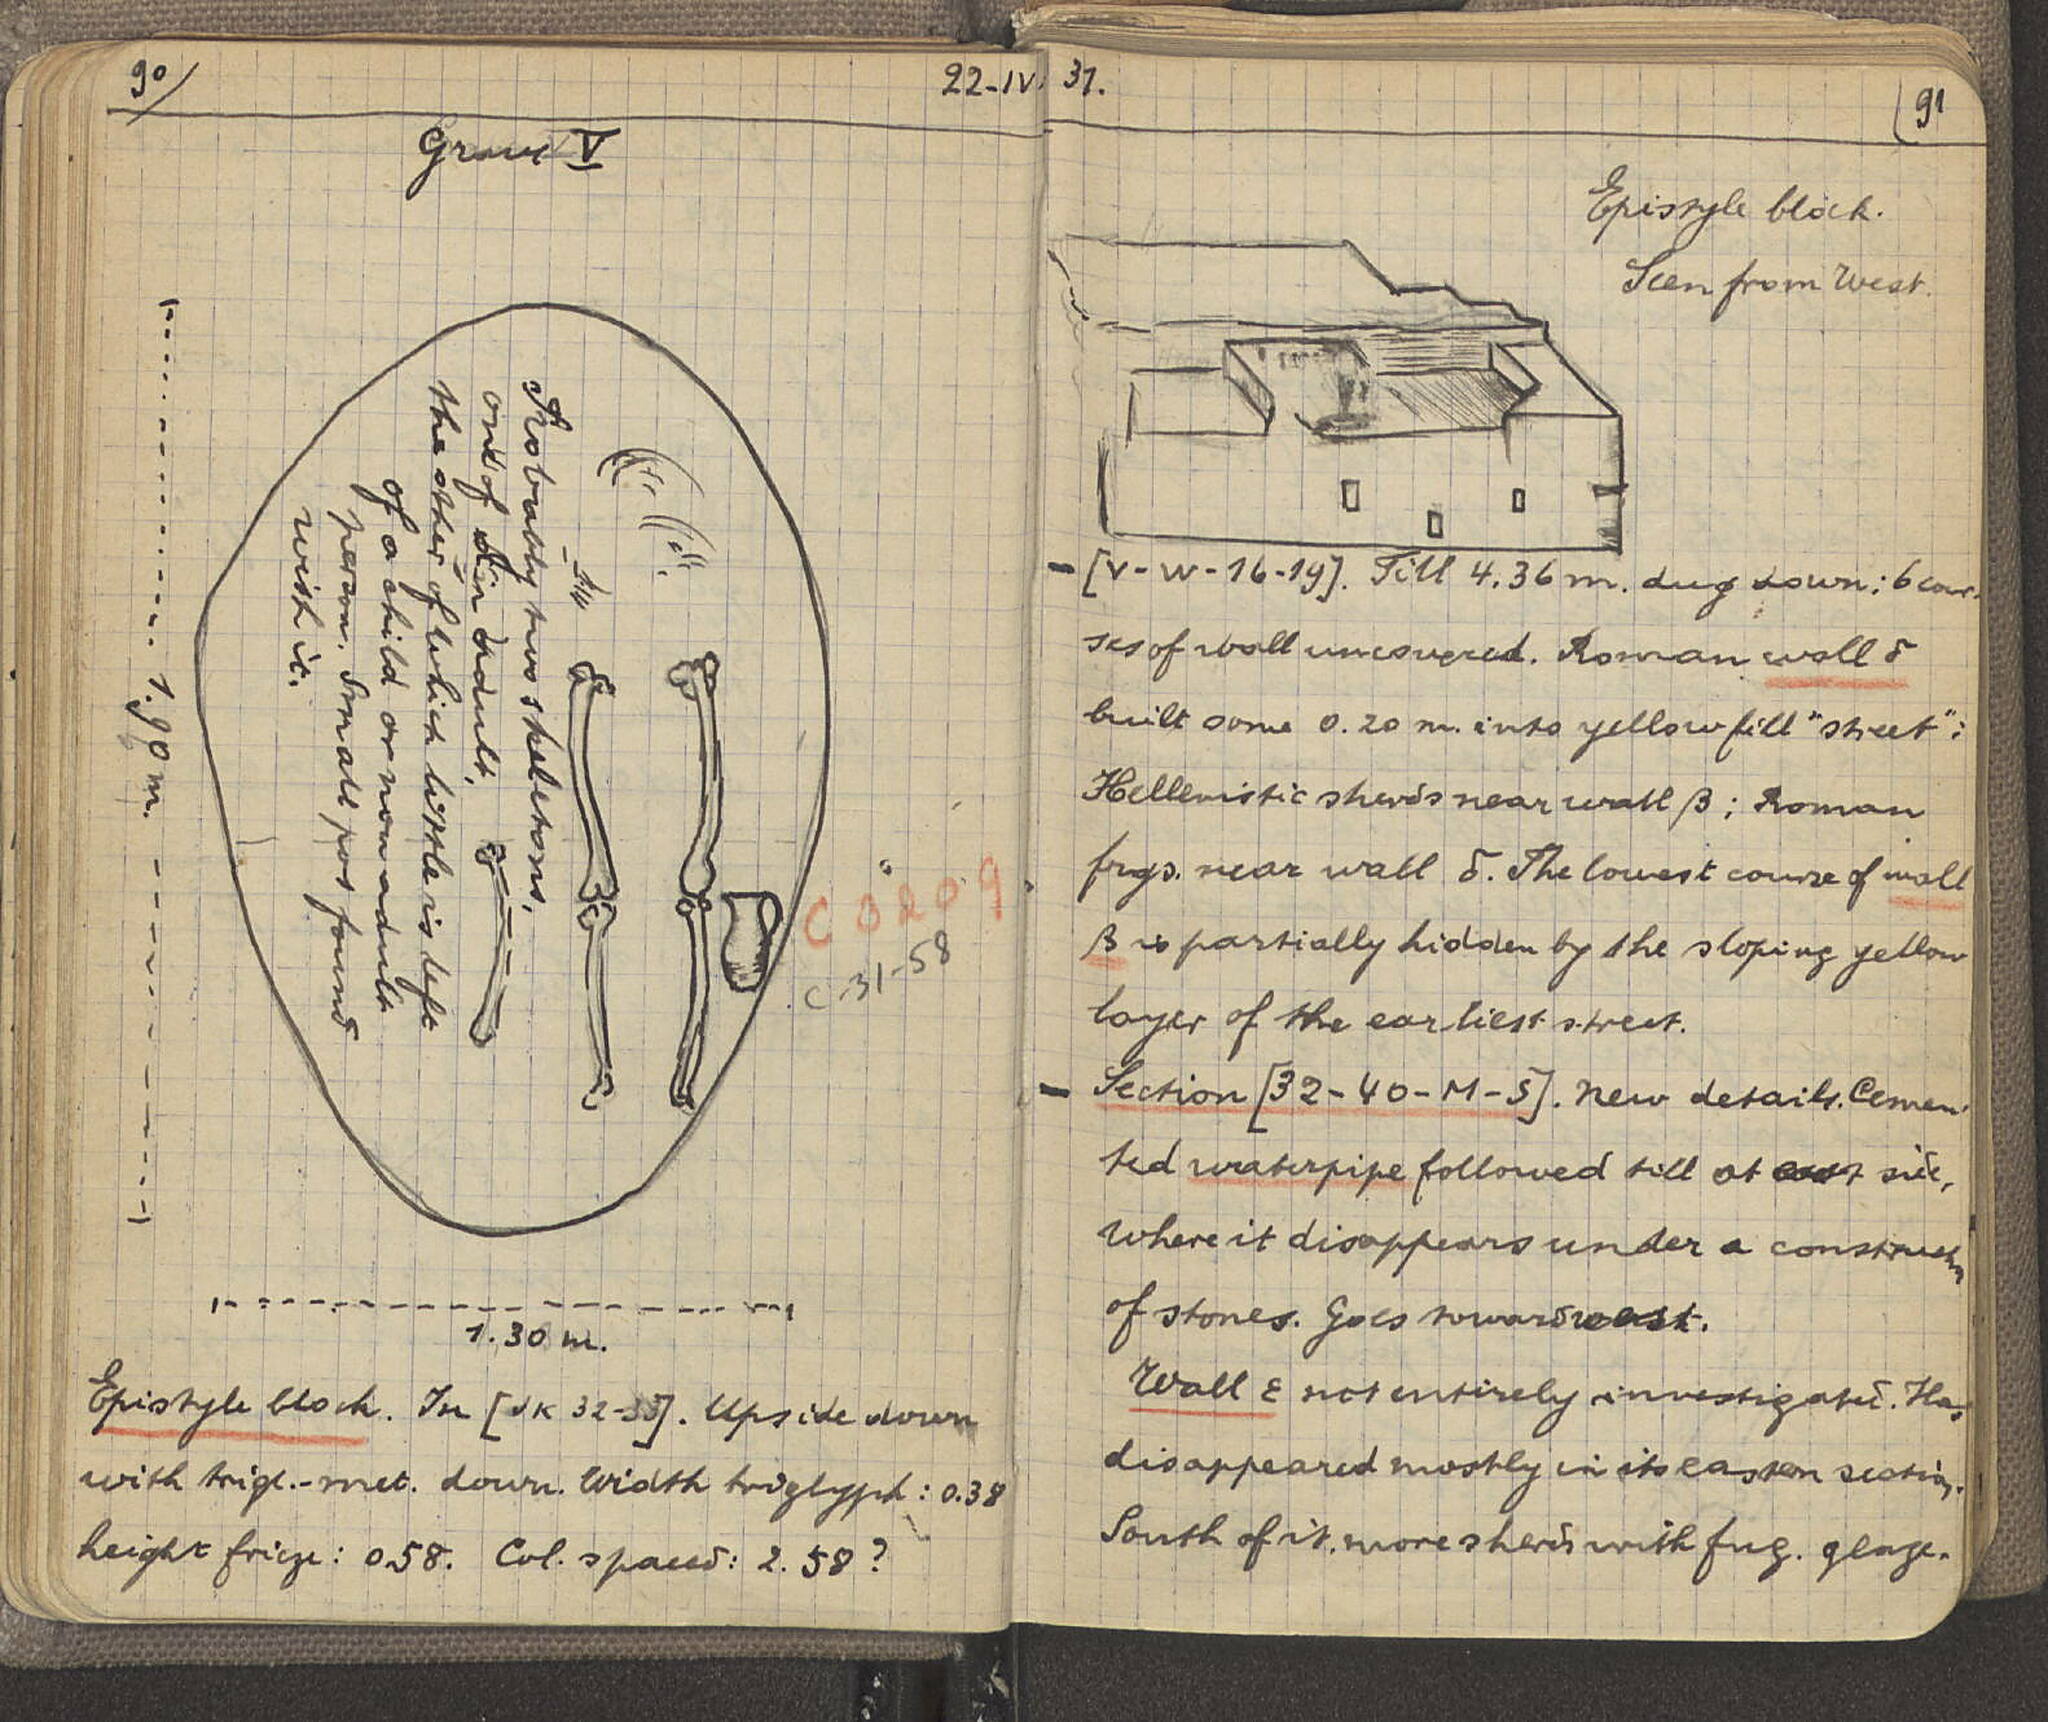 90
22-IV. 31.
Grave V
Probably two skeletons,
one of an adult,
the other of which little is left
of a child or non adult
person. Small pot found
with it.
1.90 m.
C 3209
C-31-58
1.30 m.
Epistyle block. In [JK 32-33]. Upside down
with trigl.-met. down. Width triglyph: 0.38
height frieze: 0.58. Col. spaced: 2.58?
91
Epistyle block.
Seen from West.
- [V-W-16-19]. Till 4.36 m. dug down: 6 cour-
ses of wall uncovered. Roman wall δ
built some 0.20 m. into yellow fill "street":
Hellenistic sherds near wall β; Roman
frgs. near wall δ. The lowest course of wall
β is partially hidden by the sloping yellow
layer of the earliest street.
- Section [32-40-M-S]. New details. Cemen-
ted waterpipe followed till at side,
where it disappears under a construction
of stones. Goes toward
Wall ε not entirely investigated. Has
disappeared mostly in its eastern section.
South of it, more sherds with fug. glaze.